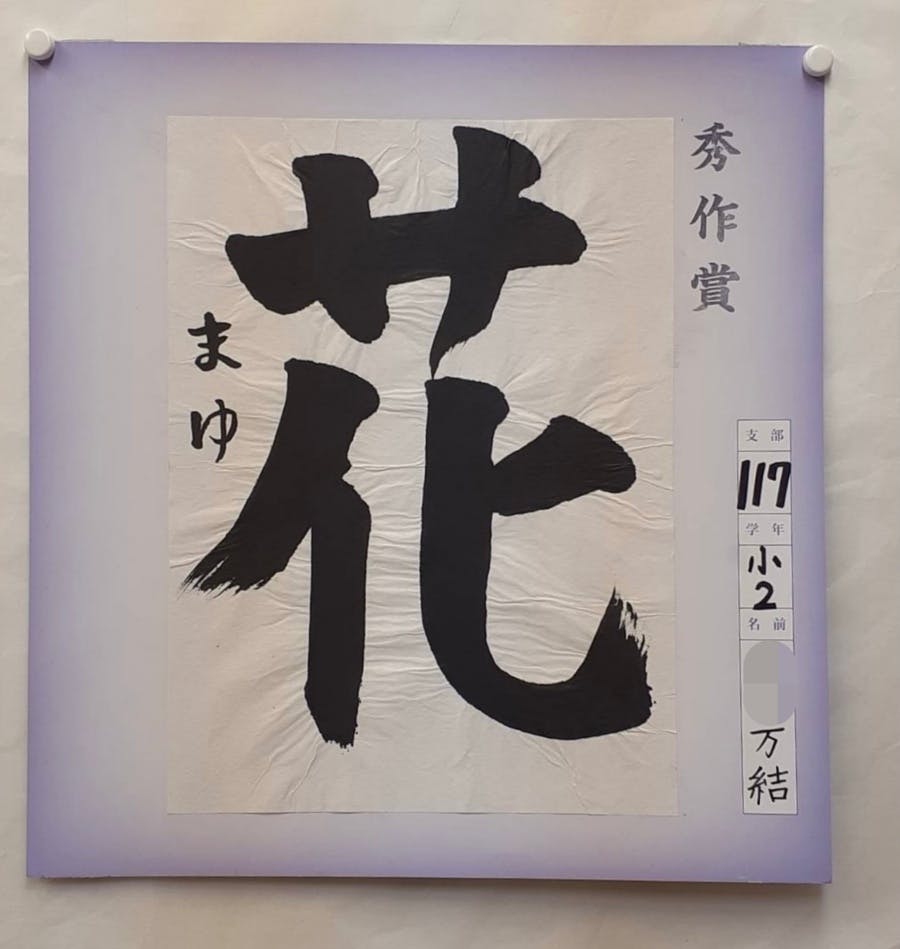 秀作賞
花
まゆ
支部
117
学年
小2
名前
万結